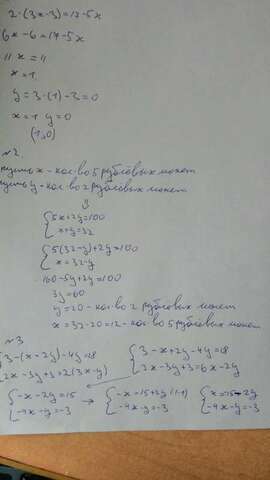 2·(3x-3)=17-5x
6x-6=17-5x
11x=11
x=1
y=3·(1)-3=0
x=1 y=0
(1;0)
№2.
пусть x - кол-во 5 рублёвых монет
пусть y - кол-во 2 рублёвых монет
{5x+2y=100
x+y=32
{5(32-y)+2y=100
x=32-y
160-5y+2y=100
3y=60
y=20 - кол-во 2 рублёвых монет
x=32-20=12 - кол-во 5 рублёвых монет
№3
{3-(x-2y)-4y=18 {3-x+2y-4y=18
2x-3y+3=2(3x-y) 2x-3y+3=6x-2y
{-x-2y=15 → {-x=15+2y |(-1) {x=-15-2y
-4x-y=-3 -4x-y=-3 -4x-y=-3